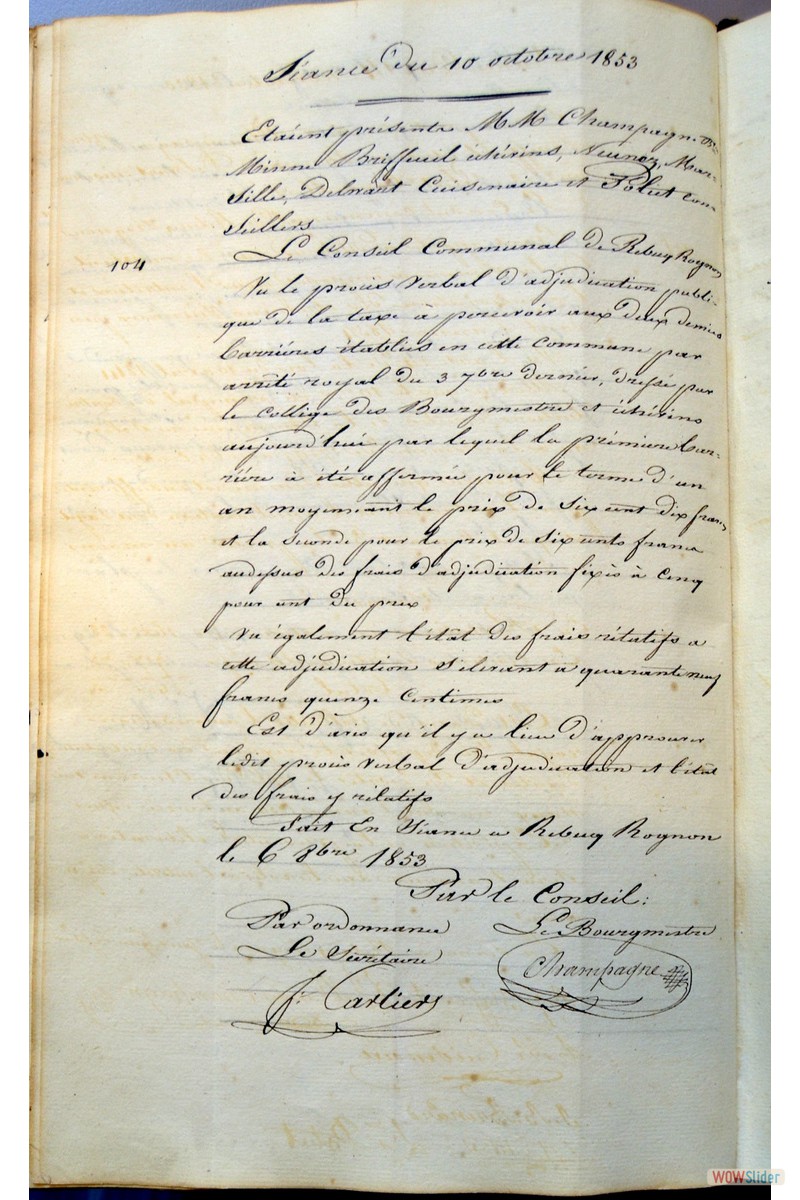 Séance du 10 octobre 1853
Etaient présents MM Champagne Br
Minne Briffeuil échévins, Neunez, Mar-
sille, Delwart Cuisenaire et Tolut con-
seillers
104
Le Conseil Communal de Rebecq Rognon
Vu le procès verbal d'adjudication publi-
que de la taxe à percevoir aux deux demies
barrières établies en cette commune par
arrêté royal du 3 7bre dernier, dressé par
le collège des Bourgmestre et échévins
aujourd'hui par lequel la première bar-
rière à été affermée pour le terme d'un
an moyennant le prix de Six cent dix francs
et la seconde pour le prix de Six cents francs
audessus des frais d'adjudication fixés à Cinq
pour cent du prix
Vu également l'état des frais rélatifs a
cette adjudication s'élevant a quarante neuf
francs quenze Centimes
Est d'avis qu'il y a lieu d'approuver
ledit procès verbal d'adjudication et l'état
des frais y rélatifs
Fait En Séance a Rebecq Rognon
le 6 8bre 1853
Par le Conseil:
Par ordonnance
Le Bourgmestre
Le Secrétaire
Champagne
J. Cartiers
WOWSlider